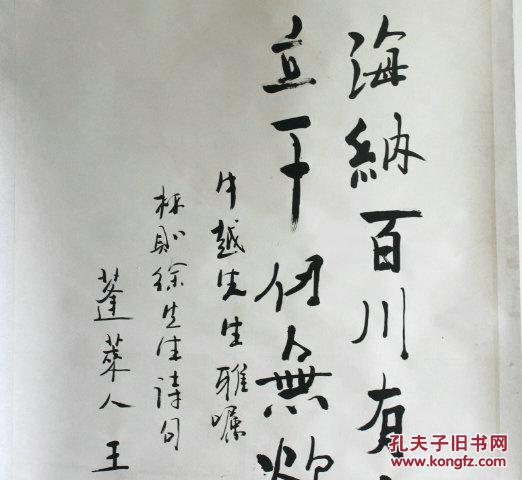 海納百川有
立千仞無欲
牛越先生雅嘱
林则徐先生詩句
蓬萊人王
孔夫子旧书网
www.kongfz.com